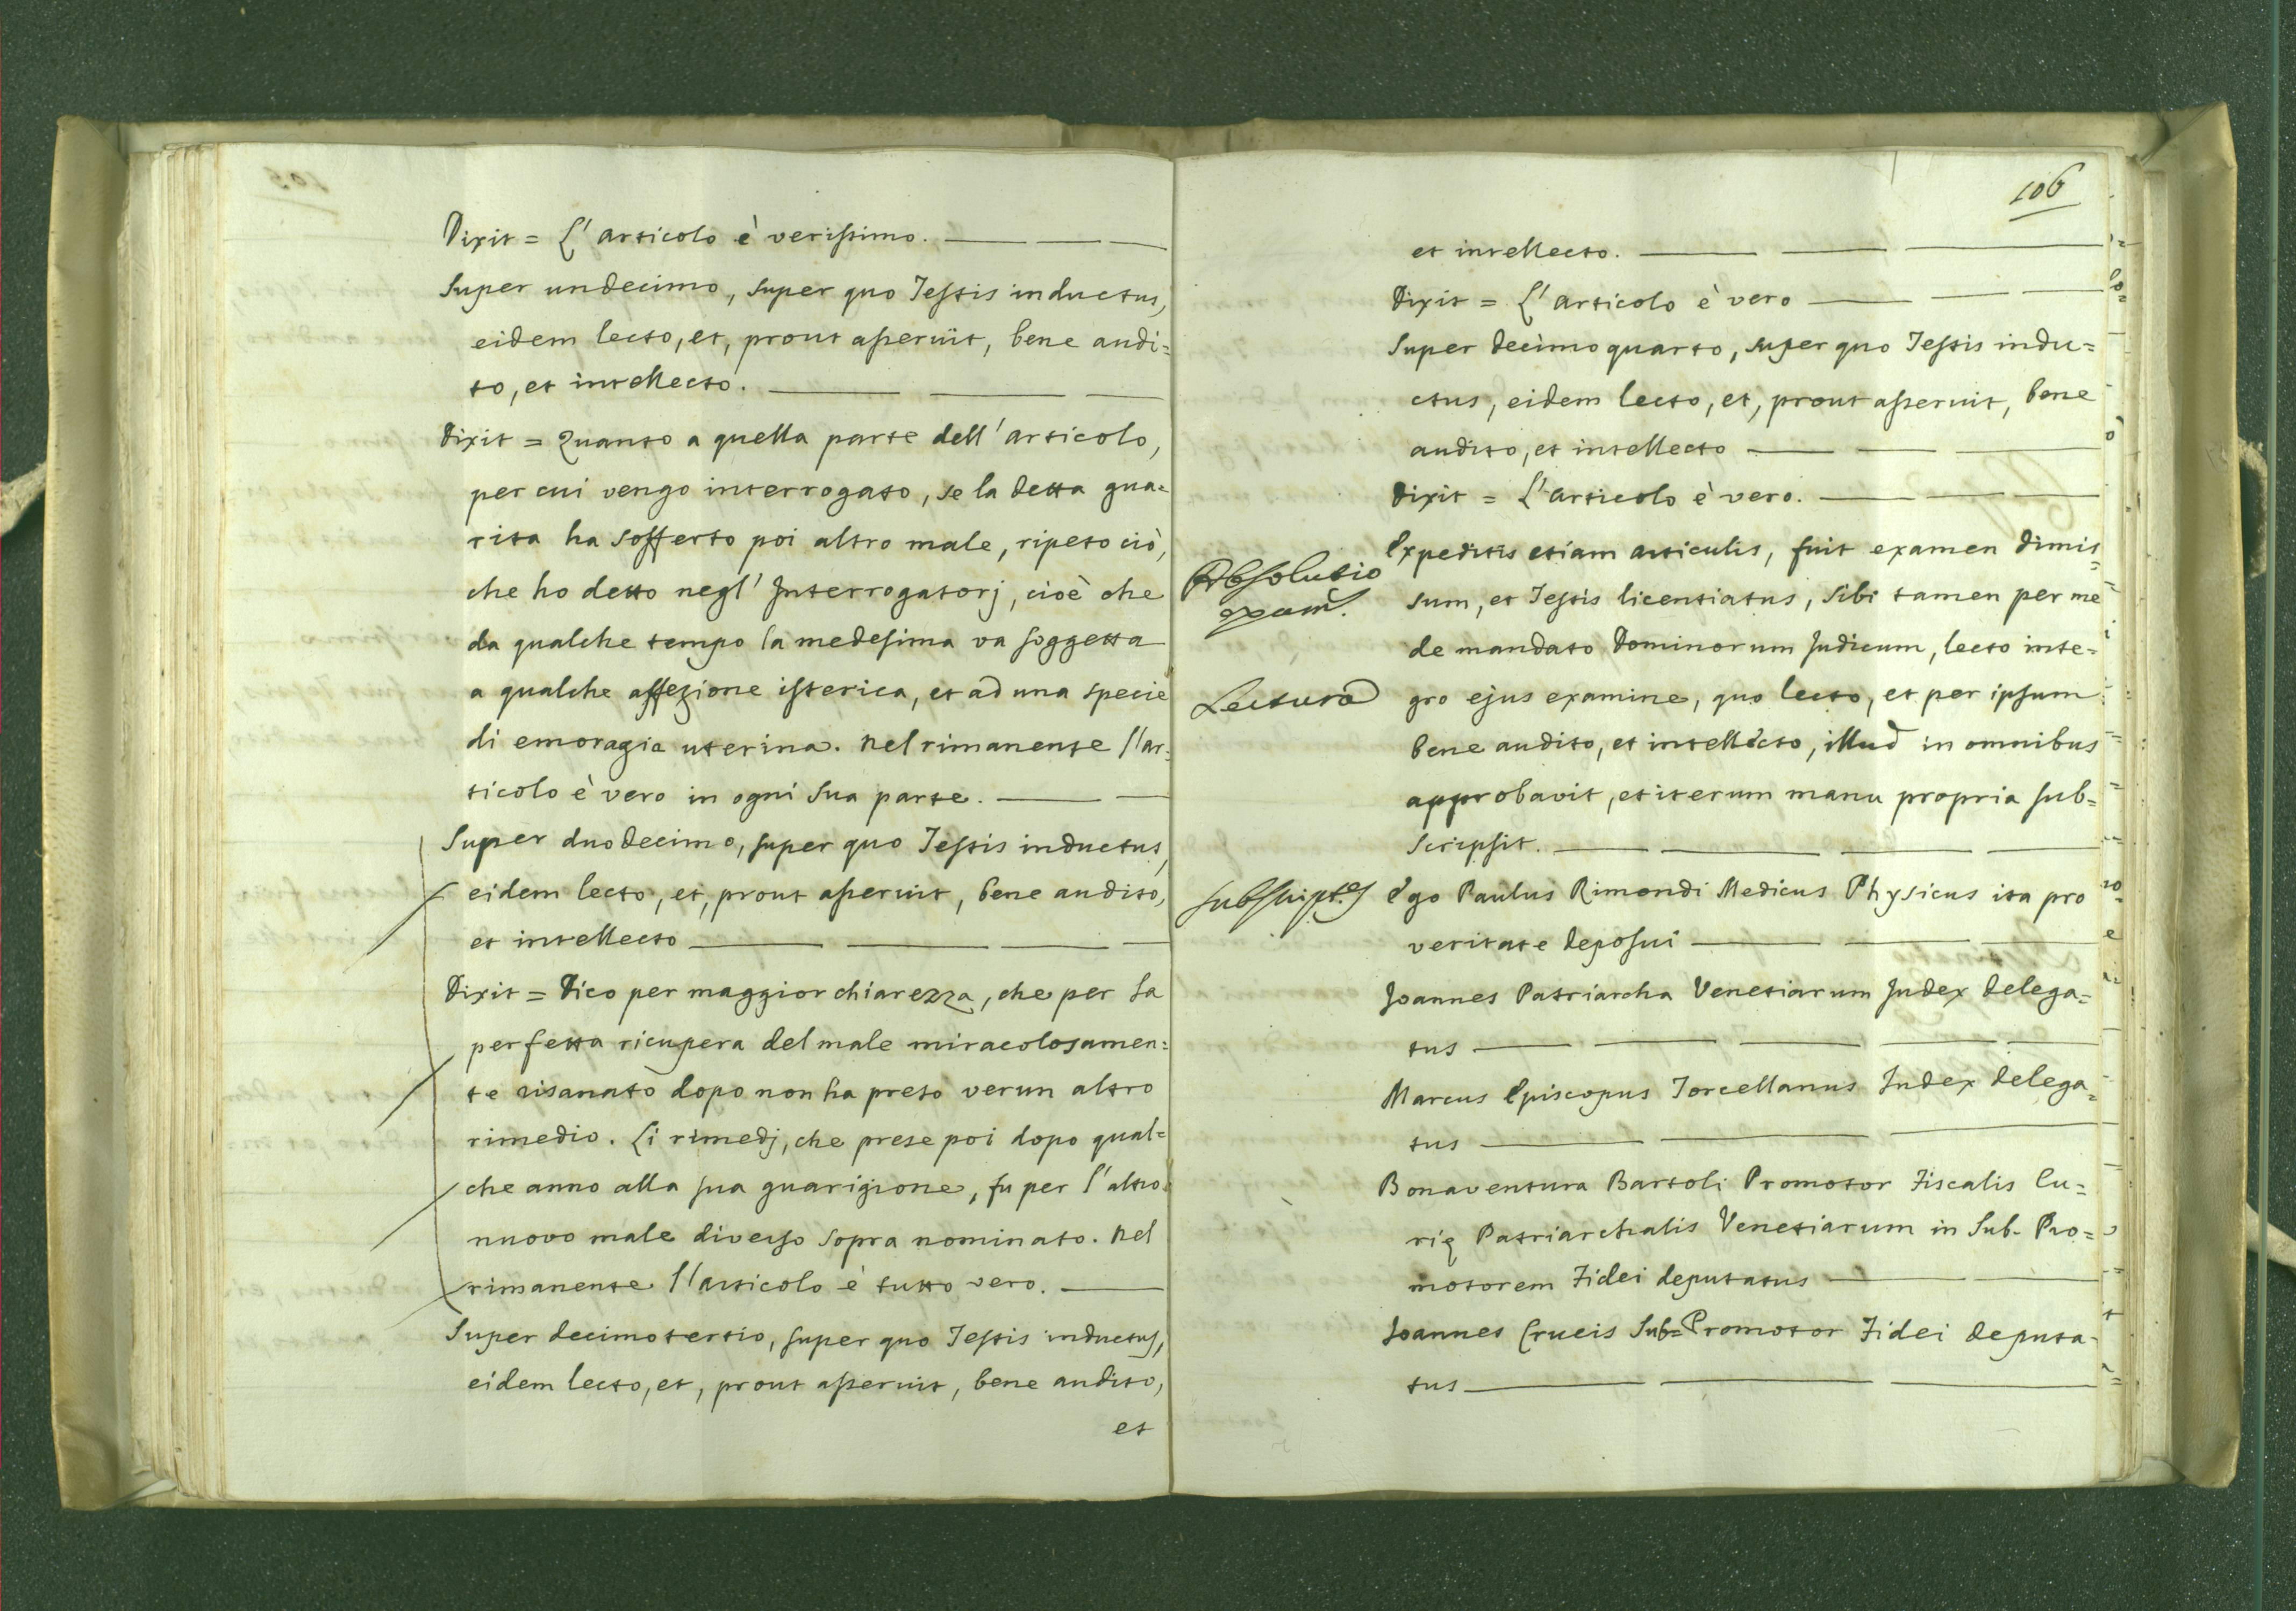 Dixit = L'articolo è verissimo.
Super undecimo, super quo Testis inductus,
eidem lecto, et, prout asseruit, bene audi=
to, et intellecto.
Dixit = Quanto a quella parte dell'articolo,
per cui vengo interrogato, se la detta gua=
rita ha sofferto poi altro male, ripeto ciò,
che ho detto negl'Interrogatorj, cioè che
da qualche tempo la medesima va soggetta
a qualche affezione isterica, et ad una specie
di emoragia uterina. Nel rimanente l'ar=
ticolo è vero in ogni sua parte.
Super duodecimo, super quo Testis inductus,
eidem lecto, et, prout asseruit, bene audito,
et intellecto
Dixit = Dico per maggior chiarezza, che per la
perfetta ricupera del male miracolosamen=
te risanato dopo non ha preso verun altro
rimedio. Li rimedj, che prese poi dopo qual=
che anno alla sua guarigione, fu per l'altro
nuovo male diverso sopra nominato. Nel
rimanente l'articolo è tutto vero.
Super decimotertio, super quo Testis inductus,
eidem lecto, et, prout asseruit, bene audito,
et
106
et intellecto.
Dixit = L'articolo è vero
Super decimoquarto, super quo Testis indu=
ctus, eidem lecto, et, prout asseruit, bene
audito, et intellecto
Dixit = L'articolo è vero.
Absolutio
exam.
Expeditis etiam articulis, fuit examen dimis=
sum, et Testis licentiatus, sibi tamen per me
de mandato Dominorum Judicum, lecto inte=
Lectura
gro ejus examine, quo lecto, et per ipsum
bene audito, et intellecto, illud in omnibus
approbavit, et iterum manu propria sub=
scripsit.
Subscript.es
Ego Paulus Rimondi Medicus Physicus ita pro
veritate deposui
Joannes Patriarcha Venetiarum Judex delega=
tus
Marcus Episcopus Torcellanus Judex delega=
tus
Bonaventura Bartoli Promotor Fiscalis Cu=
rię Patriarchalis Venetiarum in Sub-Pro=
motorem Fidei deputatus
Joannes Crucis Sub=Promotor Fidei deputa=
tus